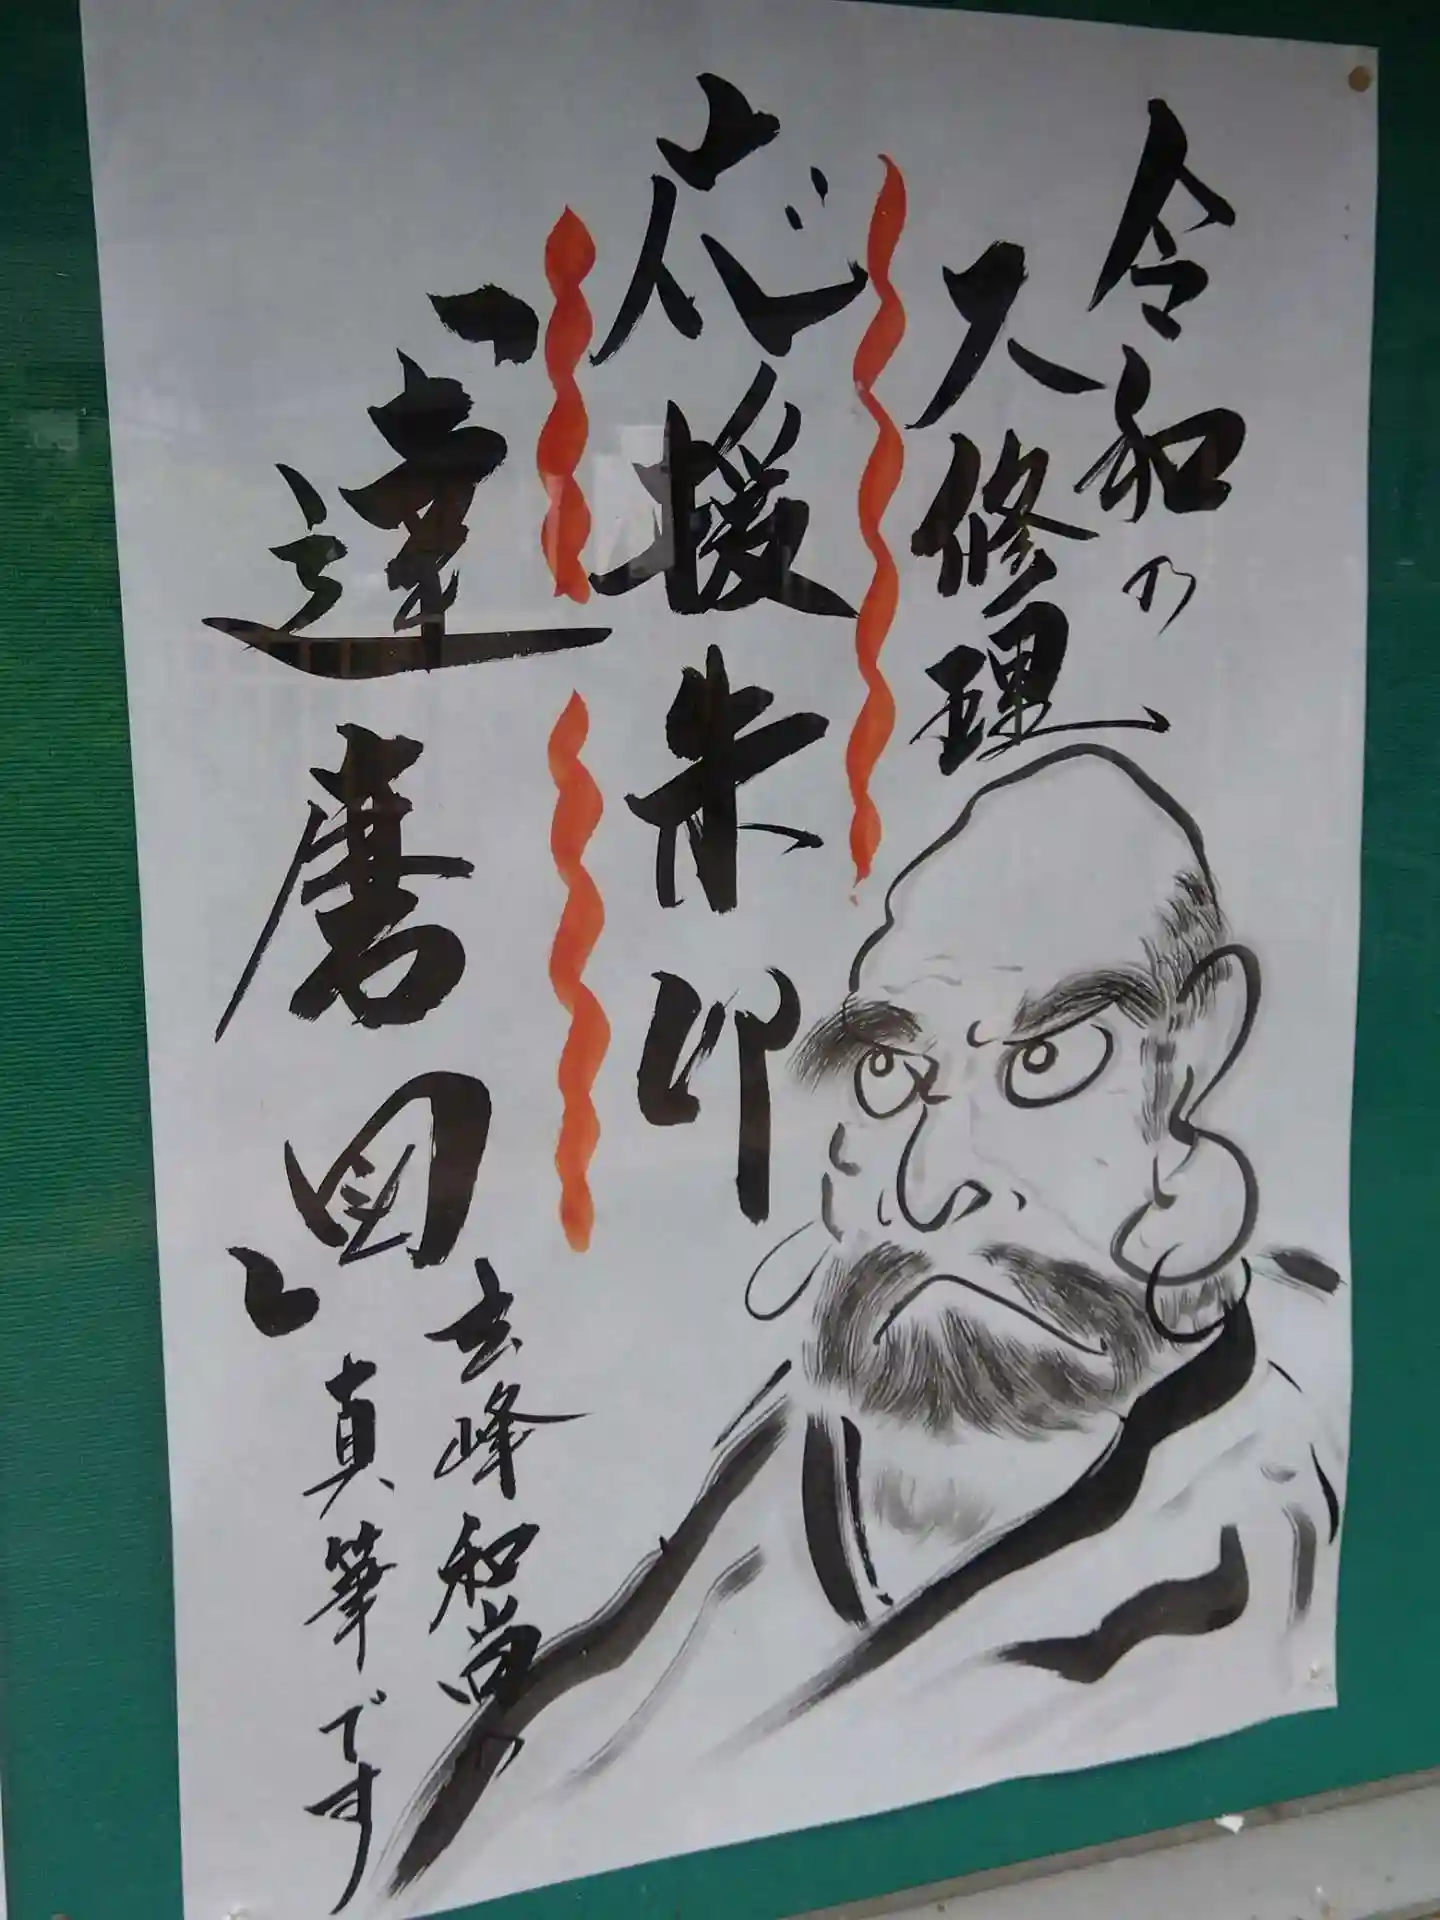 令和の
大修理
応援朱印
「達磨図」
玄峰和尚の
真筆です